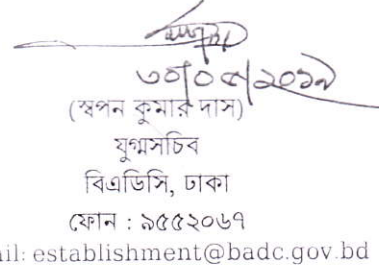 ৩০/০৫/২০১৯
(স্বপন কুমার দাস)
যুগ্মসচিব
বিএডিসি, ঢাকা
ফোন : ৯৫৫২০৬৭
ail: establishment@badc.gov.bd